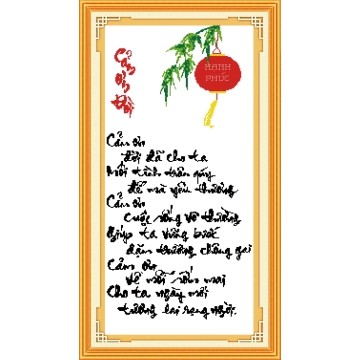 Cảm ơn đời
HẠNH
PHÚC
Cảm ơn
đời đã cho ta
Một tình trân quý
để mà yêu thương
Cảm ơn
cuộc sống vô thường
Giúp ta vững bước
dặm trường chông gai
Cảm ơn
về mỗi sớm mai
Cho ta ngày mới
tương lai rạng ngời.